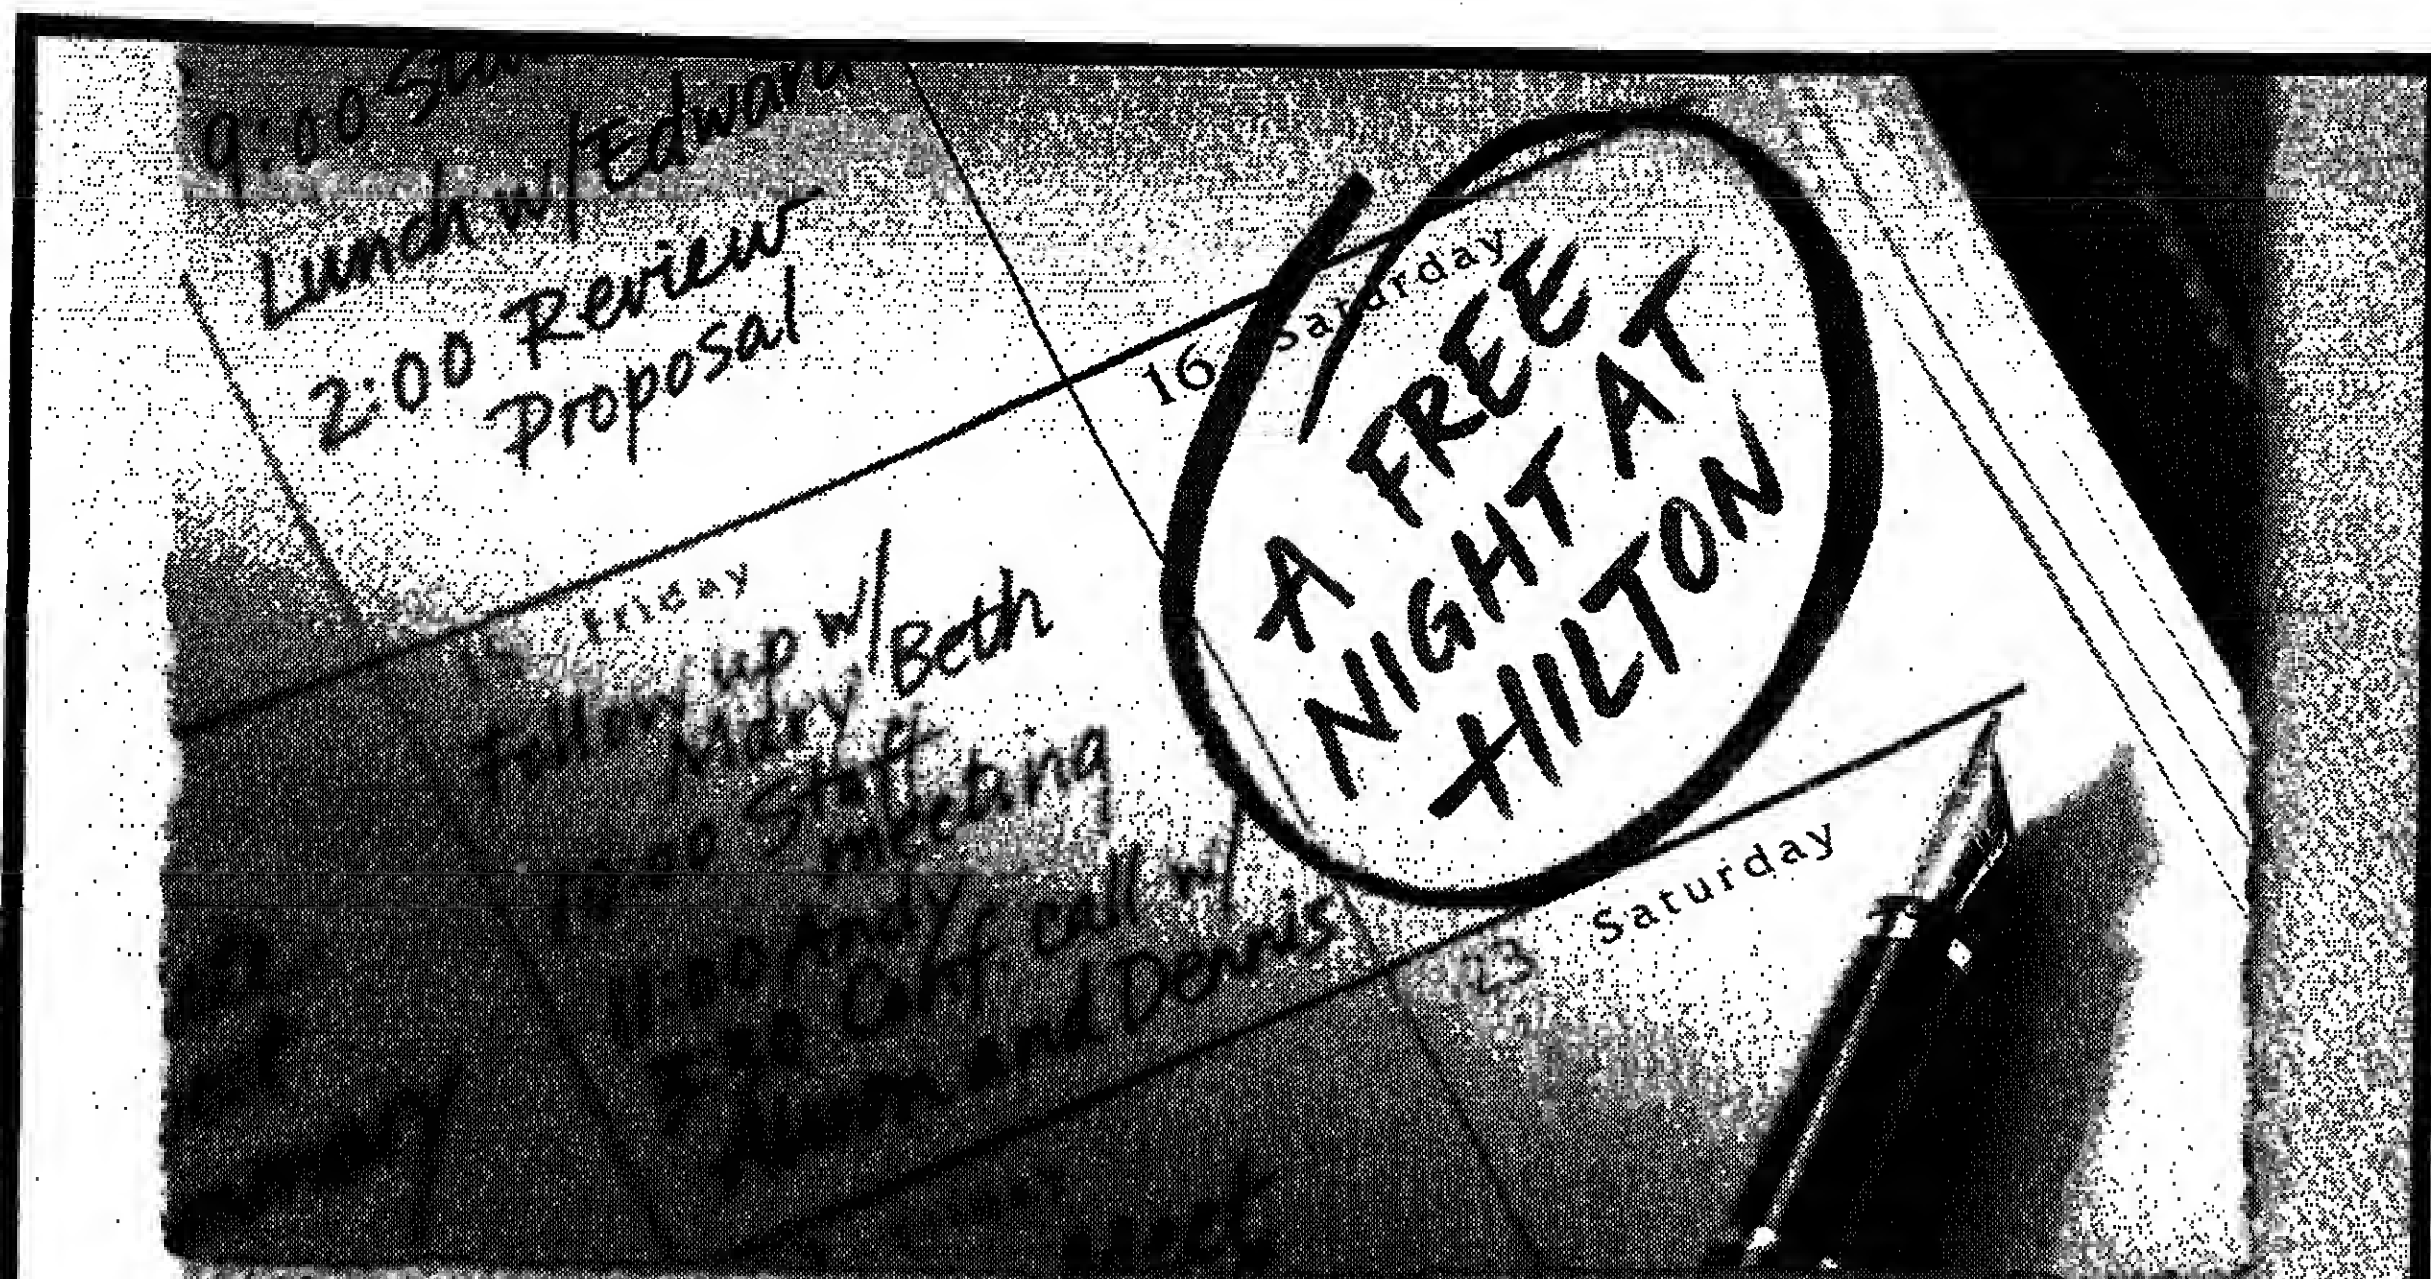 9:00
Lunch w/ Edward
2:00 Review
Proposal
16 Saturday
A FREE
NIGHT AT
HILTON
Friday
Follow up w/
Mary Beth
10:00 Staff
meeting
11:00 Andy
Conf. call w/
and Dennis
23 Saturday